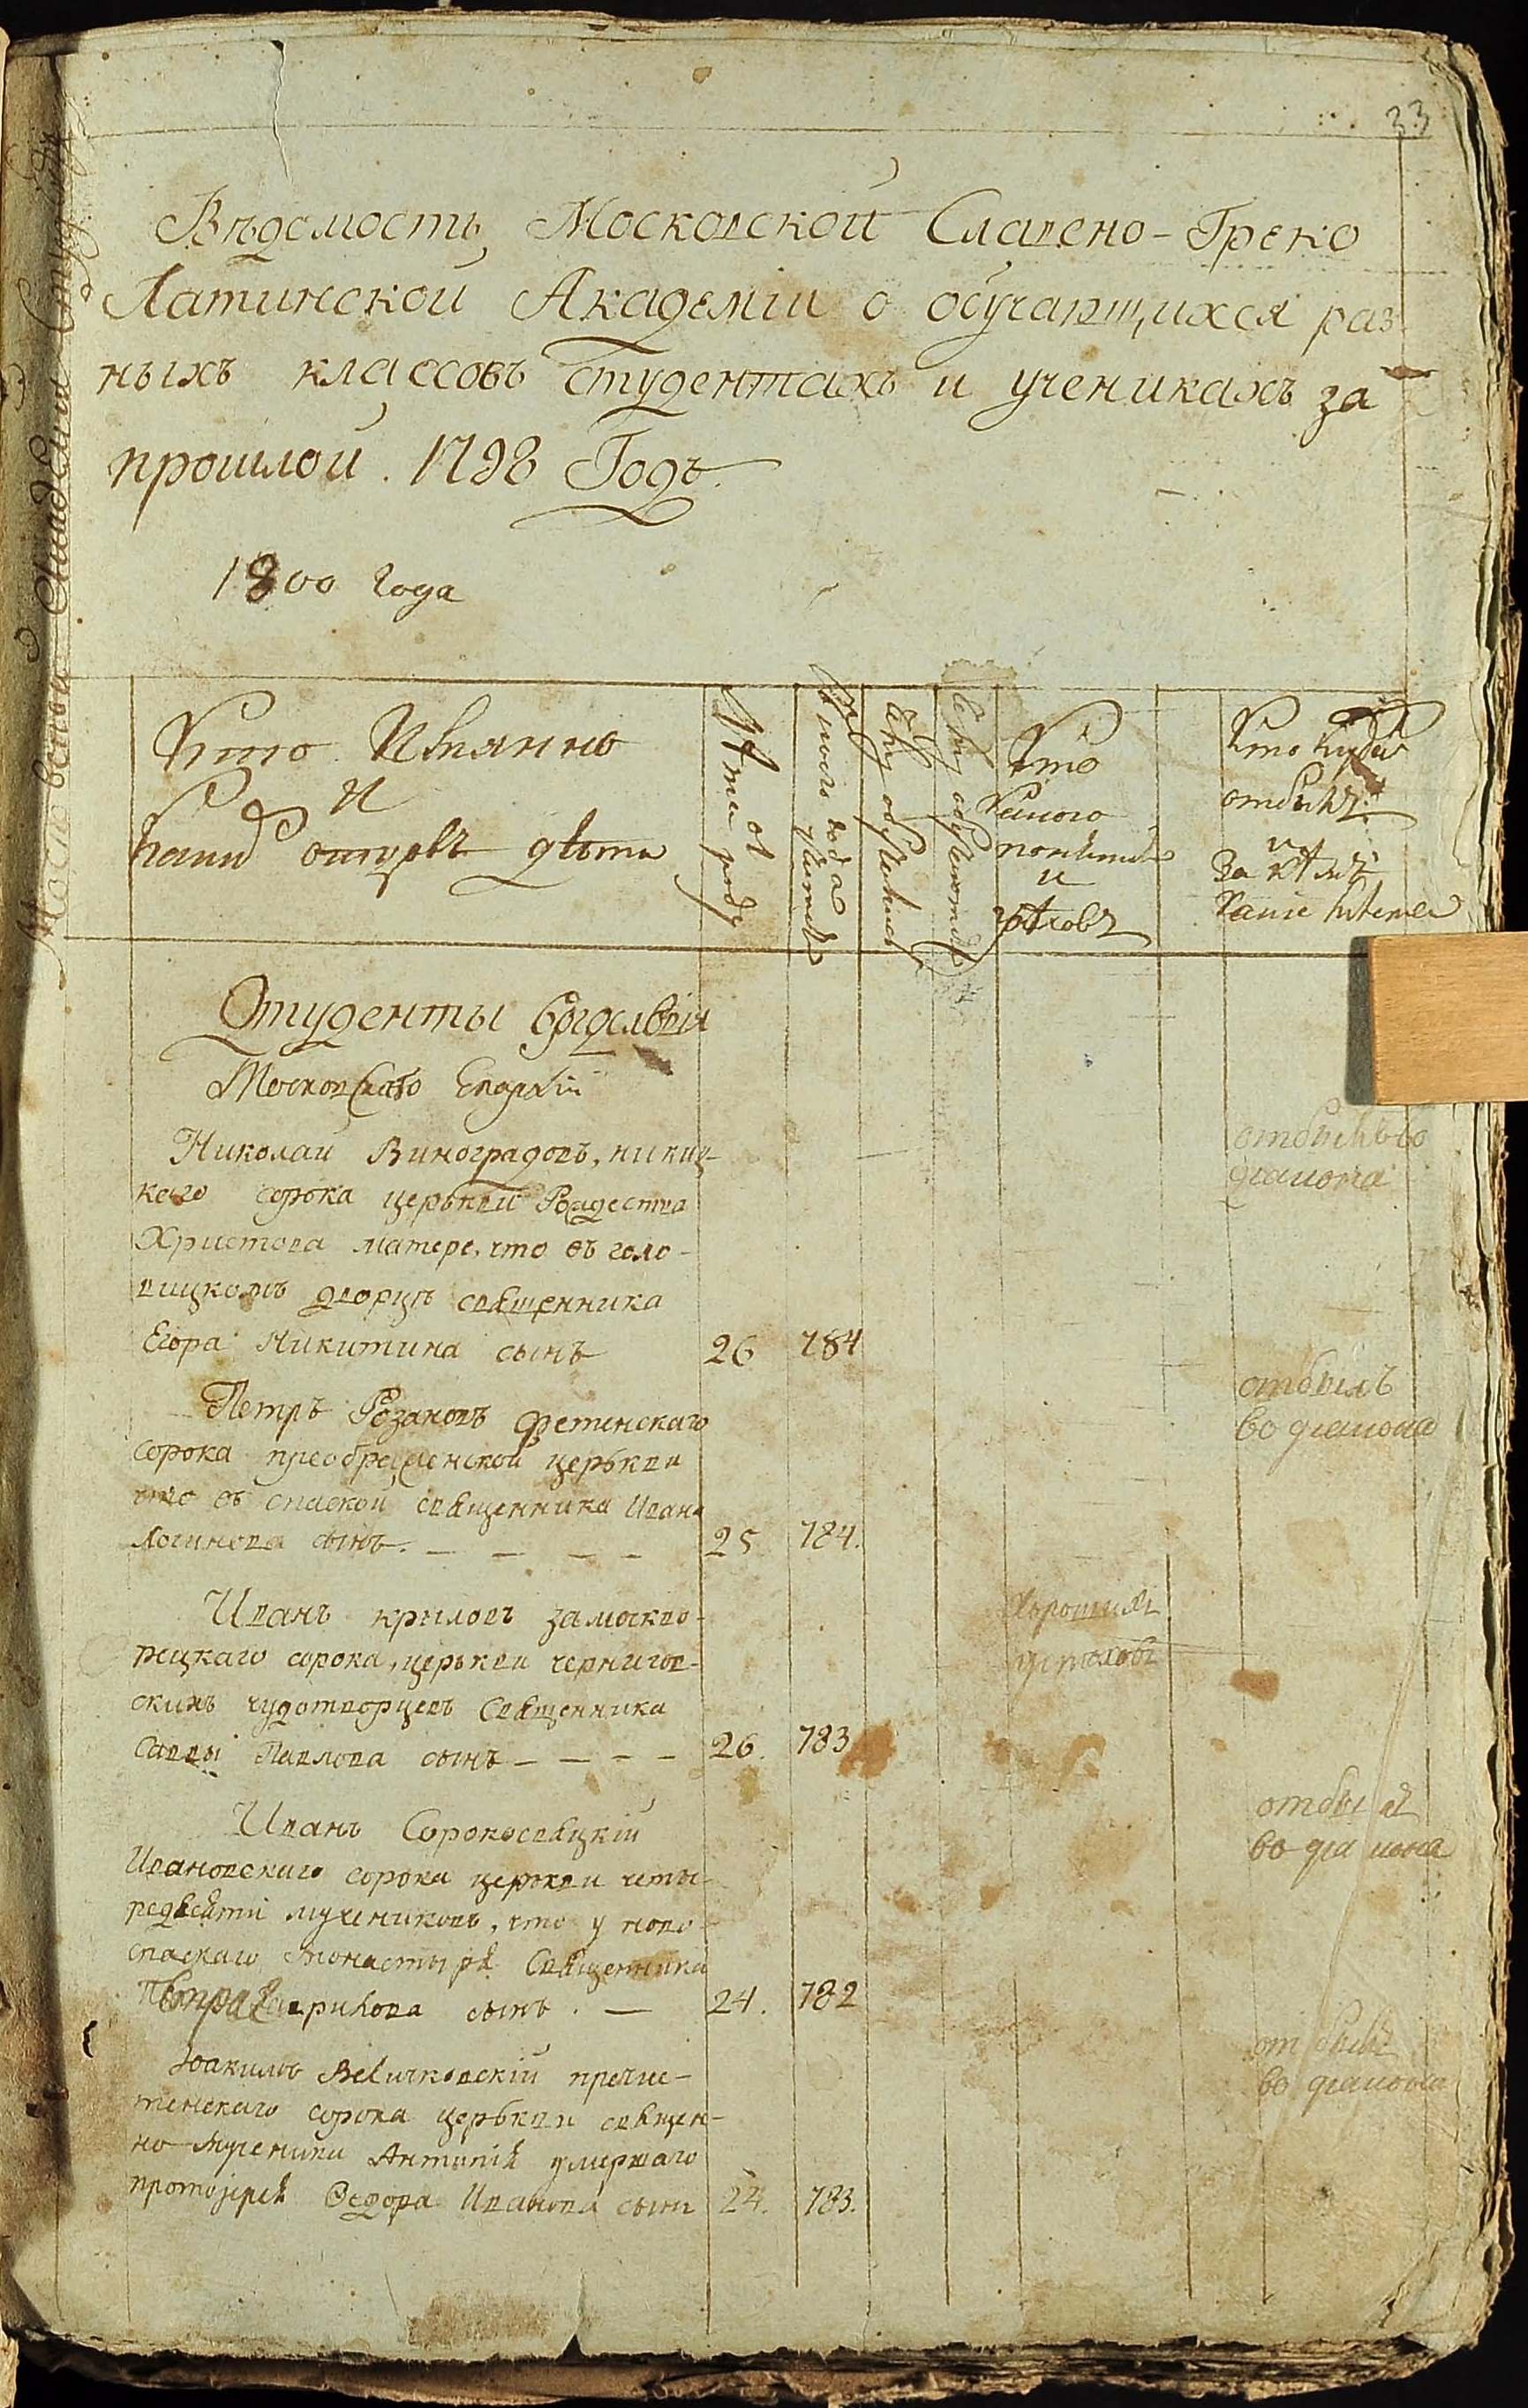 33
Вѣдомость Московской Славено-Греко
Латинской Академіи о обучающихся раз
ныхъ классовъ студентахъ и ученикахъ за
прошлой. 1798 Годъ.
1800 года
Кто Имянно
и
какихъ отцовъ дѣти
Лѣта от роду
Кто
какого
понятія
и
успѣховъ
Кто куда
отбылъ
и
за кѣмъ
какіе
Студенты богословіи
Московской Епархіи
Николай Виноградовъ, никиц-
каго сорока церькви Рождества
Христова матере, что въ голо-
вицкомъ дворцѣ священника
Егора Никитина сынъ
26
784
отбылъ во
диакона
Петръ Розановъ Сретенскаго
сорока преображенской церькви
что въ спаской священника Ивана
Логинова сынъ. — — — —
25
784.
отбылъ
во диакона
Иванъ крыловъ замоскво-
рецкаго сорока, церькви чернигов-
скихъ чудотворцевъ Священника
Саввы Павлова сынъ — — — —
26.
783
хорошихъ
успѣховъ
Иванъ Сорокосвяцкій
Ивановскаго сорока церькви четы-
редесяти мучениковъ, что у ново-
спаскаго монастыря Священника
Петра Гаврилова сынъ. —
24.
782
отбылъ
во диакона
Іоакимъ Величковскій пречис-
тенскаго сорока церькви священ-
но-мученика Антипія умершаго
протоіерея Ѳедора Иванова сынъ
24.
783.
отбылъ
во диакона